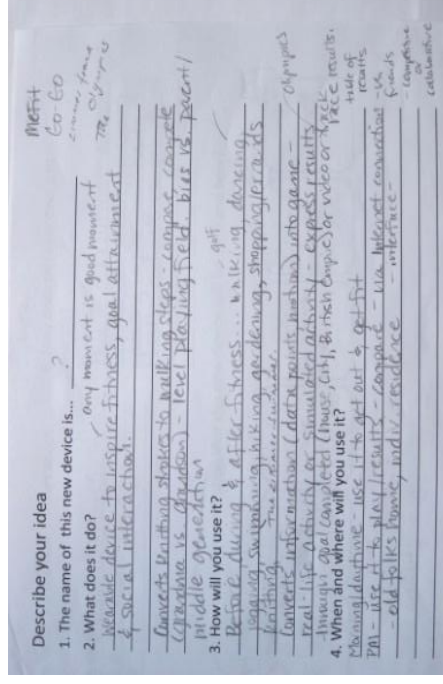 Describe your idea
MeFit
Go Go
1. The name of this new device is... ?
The Olympics
any moment is good moment
2. What does it do?
Wearable device to inspire fitness, goal attainment
& social interaction.
Converts knitting strokes to walking steps - compare compete
(grandma vs. grandson) - level playing field. bies vs. parent/
middle generation
3. How will you use it?
golf
Before, during & after fitness... walking, dancing,
jogging, swimming, hiking, gardening, shopping/errands
knitting
Olympics
Converts information (data points/motion) into game -
real-life activity or simulated activity - express results
through goal completed (house, city, British Empire) or video or track
race results.
4. When and where will you use it?
table of
results
Morning/daytime - use it to get out & get fit
PM - use it to play/results - compare - via Internet connection - vs
friends
- old folks home, indiv. residence - interface -
- competitive
or
collaborative